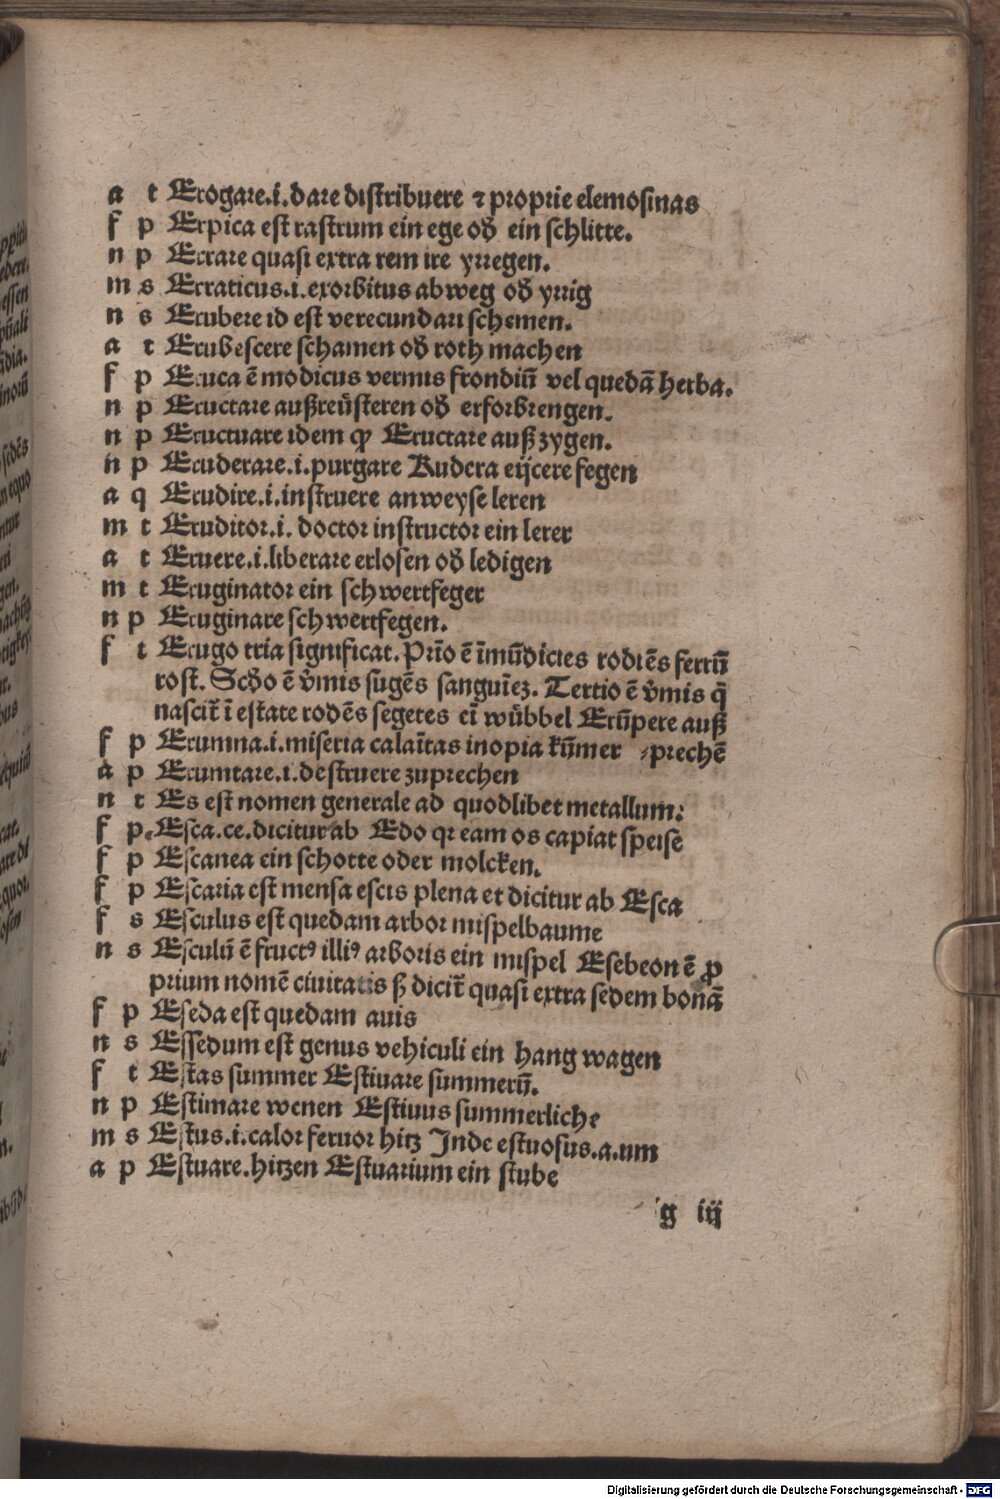 a t Erogare.i.dare distribuere ⁊ proprie elemosinas
f p Erpica est rastrum ein ege od̕ ein schlitte.
n p Errare quasi extra rem ire yrregen.
m s Erraticus.i.exorbitus abweg od̕ yrrig
n s Erubere id est verecundari schemen.
a t Erubescere schamen od̕ roth machen
f p Eruca ē modicus vermis frondiū vel quedā herba.
n p Eructare außreüsteren od̕ erforbrengen.
n p Eructuare idem qƺ Eructare auß zygen.
n p Eruderare.i.purgare Rudera eijcere fegen
a q Erudire.i.instruere anweyse leren
m t Eruditor.i. doctor instructor ein lerer
a t Eruere.i.liberare erlosen od̕ ledigen
m t Eruginator ein schwertfeger
n p Eruginare schwertfegen.
f t Erugo tria significat. Prīo ē īmūdicies rodiēs ferrū
rost. Scd̕o ē v̕mis sugēs sanguīeƺ. Tertio ē v̕mis q̄
nascit̄ ī estate rodēs segetes eī wübbel Erūpere auß
f p Erumna.i.miseria calaītas inopia kūmer ⸗prechē
a p Erumtare.i.destruere zuprechen
n t Es est nomen generale ad quodlibet metallum:
f p Esca.ce.dicitur ab Edo qr eam os capiat speise
f p Escanea ein schotte oder molcken.
f p Escaria est mensa escis plena et dicitur ab Esca
f s Esculus est quedam arbor mispelbaume
n s Esculū ē fructꝰ illiꝰ arboris ein mispel Esebeon ē ꝓ
prium nomē ciuitatis ß dicit̄ quasi extra sedem bonā
f p Eseda est quedam auis
n s Essedum est genus vehiculi ein hang wagen
f t Estas summer Estiuare summerū.
n p Estimare wenen Estiuus summerliche
m s Estus.i.calor feruor hitz Inde estuosus.a.um
a p Estuare.hitzen Estuarium ein stube
g iij
Digitalisierung gefördert durch die Deutsche Forschungsgemeinschaft - DFG